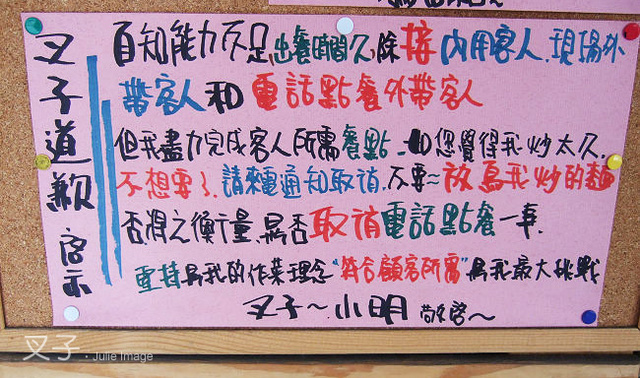 叉子道歉 启示
自知能力不足,出餐時間久,除接內用客人.現場外
帶客人和電話點餐外帶客人
但我盡力完成客人所需餐點.如您覺得我炒太久.
不想要了.請來電通知取消.不要~放鳥我炒的麵
否將之衡量.是否取消電話點餐一事.
堅持是我的作菜理念"符合顧客所需"是我最大挑戰
叉子~小明 敬啓~
叉子·Julie Image